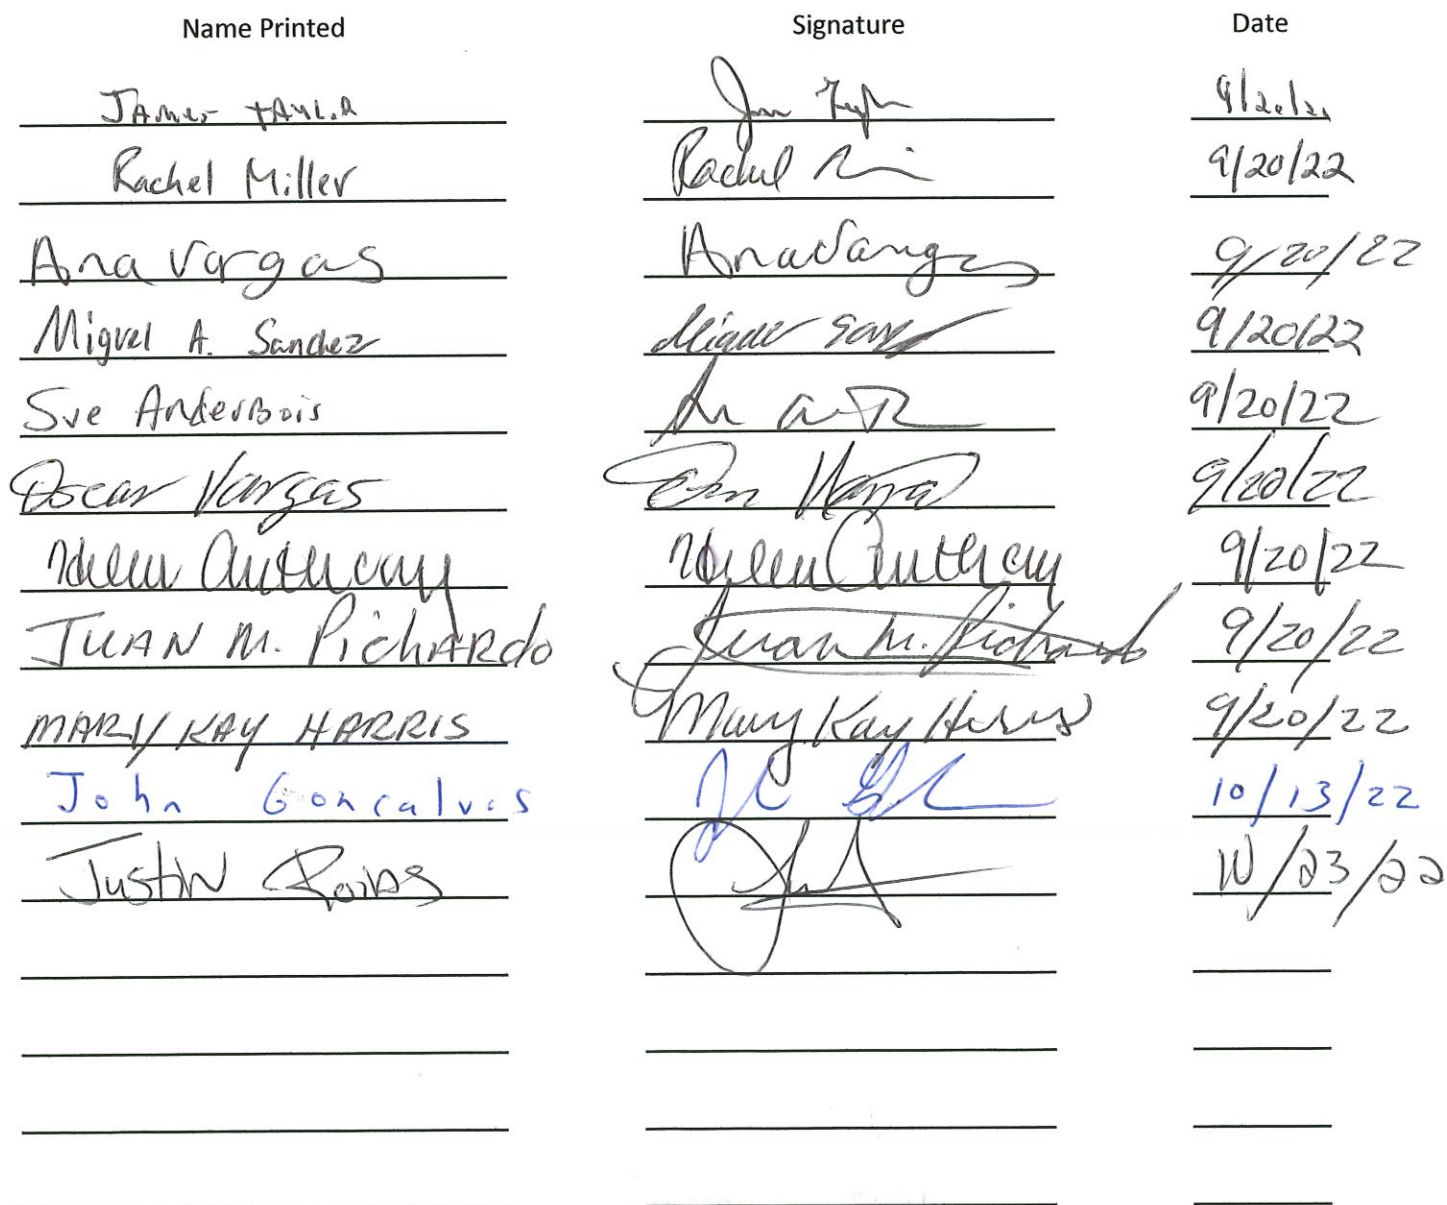 Name Printed Signature Date
James Taylor 9/20/22
Rachel Miller Rachel 9/20/22
Ana Vargas Ana Vargas 9/20/22
Miguel A. Sanchez Miguel 9/20/22
Sue AnderBois 9/20/22
Oscar Vargas 9/20/22
Helen Anthony Helen Anthony 9/20/22
JUAN M. PichARdo Juan M. Pichardo 9/20/22
MARY KAY HARRIS Mary Kay Harris 9/20/22
John Goncalves 10/13/22
Justin 10/23/22